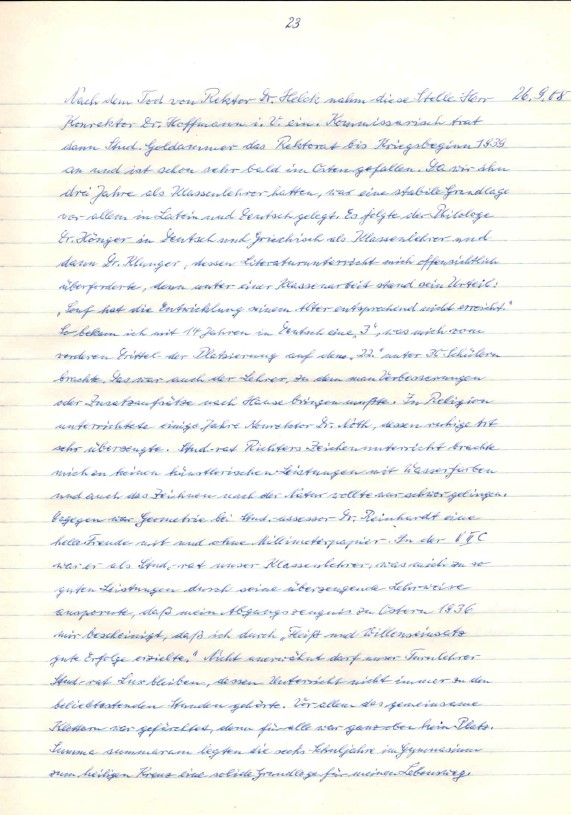 23
Nach dem Tod von Rektor Dr. Helck nahm diese Stelle Herr 26.9.08
Konrektor Dr. Hoffmann i. V. ein. Kommissarisch trat
dann Stud. Goldammer das Rektorat bis Kriegsbeginn 1939
an und ist schon sehr bald im Osten gefallen. Da wir ihn
drei Jahre als Klassenlehrer hatten, war eine stabile Grundlage
vor allem in Latein und Deutsch gelegt. Es folgte der Philologe
Dr. Hönger in Deutsch und Griechisch als Klassenlehrer und
dann Dr. Klunger, dessen Literaturunterricht mich offensichtlich
überforderte, denn unter einer Klassenarbeit stand sein Urteil:
" hat die Entwicklung seinem Alter entsprechend nicht erreicht."
So bekam ich mit 14 Jahren in Deutsch eine „3", was mich vom
vorderen Drittel der Platzierung auf den „22." unter 30 Schülern
brachte. Das war auch der Lehrer, zu dem man Verbesserungen
oder Zusatzaufsätze nach Hause bringen mußte. In Religion
unterrichtete einige Jahre Konrektor Dr. Nöth, dessen ruhige Art
sehr überzeugte. Stud.-rat Richters Zeichenunterricht brachte
mich zu keinen künstlerischen Leistungen mit Wasserfarben
und auch das Zeichnen nach der Natur wollte nur schwer gelingen.
Dagegen war Geometrie bei Stud.-assessor Dr. Reinhardt eine
helle Freude mit und ohne Millimeterpapier. In der
war er als Stud.-rat unser Klassenlehrer, was mich zu so
guten Leistungen durch seine überzeugende Lehrweise
anspornte, daß mein Abgangszeugnis zu Ostern 1936
mir bescheinigt, daß ich durch „Fleiß und Willenseinsatz
gute Erfolge erzielte." Nicht unerwähnt darf unser Turnlehrer
Stud.-rat Lux bleiben, dessen Unterricht nicht immer zu den
beliebtesten Stunden gehörte. Vor allem das gemeinsame
Klettern war gefürchtet, denn für alle war ganz oben kein Platz.
Summa summarum legten die sechs Schuljahre im Gymnasium
zum heiligen Kreuz eine solide Grundlage für meinen Lebensweg.